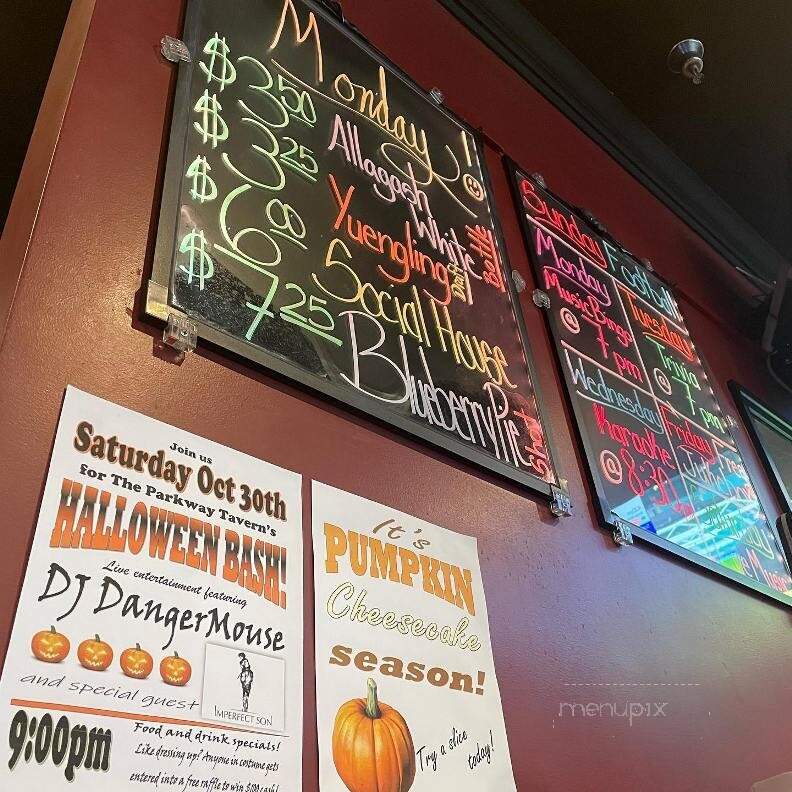 Monday!
$3.50 Allagash White Bottle
$3.25 Yuengling Draft
$6.00 Social House
$7.25 Blueberry Pie Shot
Sunday Football
Monday
Music Bingo
@ 7 pm
Tuesday
Trivia
@ 7 pm
Wednesday
Karaoke
@ 8:30
Friday
Music
Join us
Saturday Oct 30th
for The Parkway Tavern's
HALLOWEEN BASH!
Live entertainment featuring
DJ DangerMouse
and special guest
IMPERFECT SON
9:00pm
Food and drink specials!
Like dressing up? Anyone in costume gets
entered into a free raffle to win $100 cash!
It's
PUMPKIN
Cheesecake
season!
Try a slice
today!
menupix